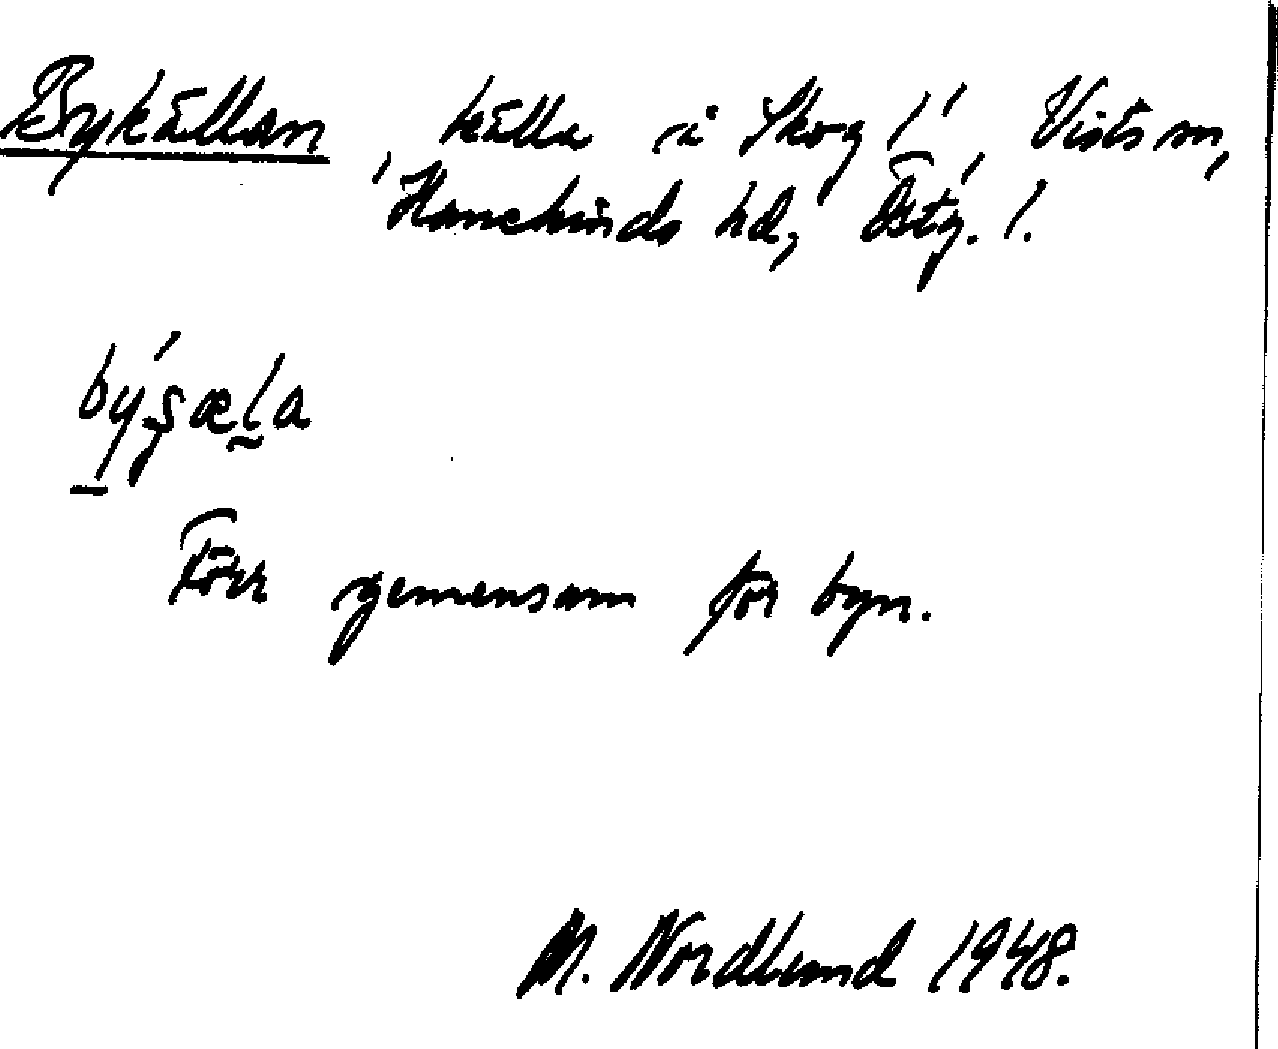 Bykällan, källa i Skog 1¹, Vists sn,
Hanekinds hd, Östg. l.
býʂæl̰a
Förr gemensam för byn.
M. Nordlund 1948.